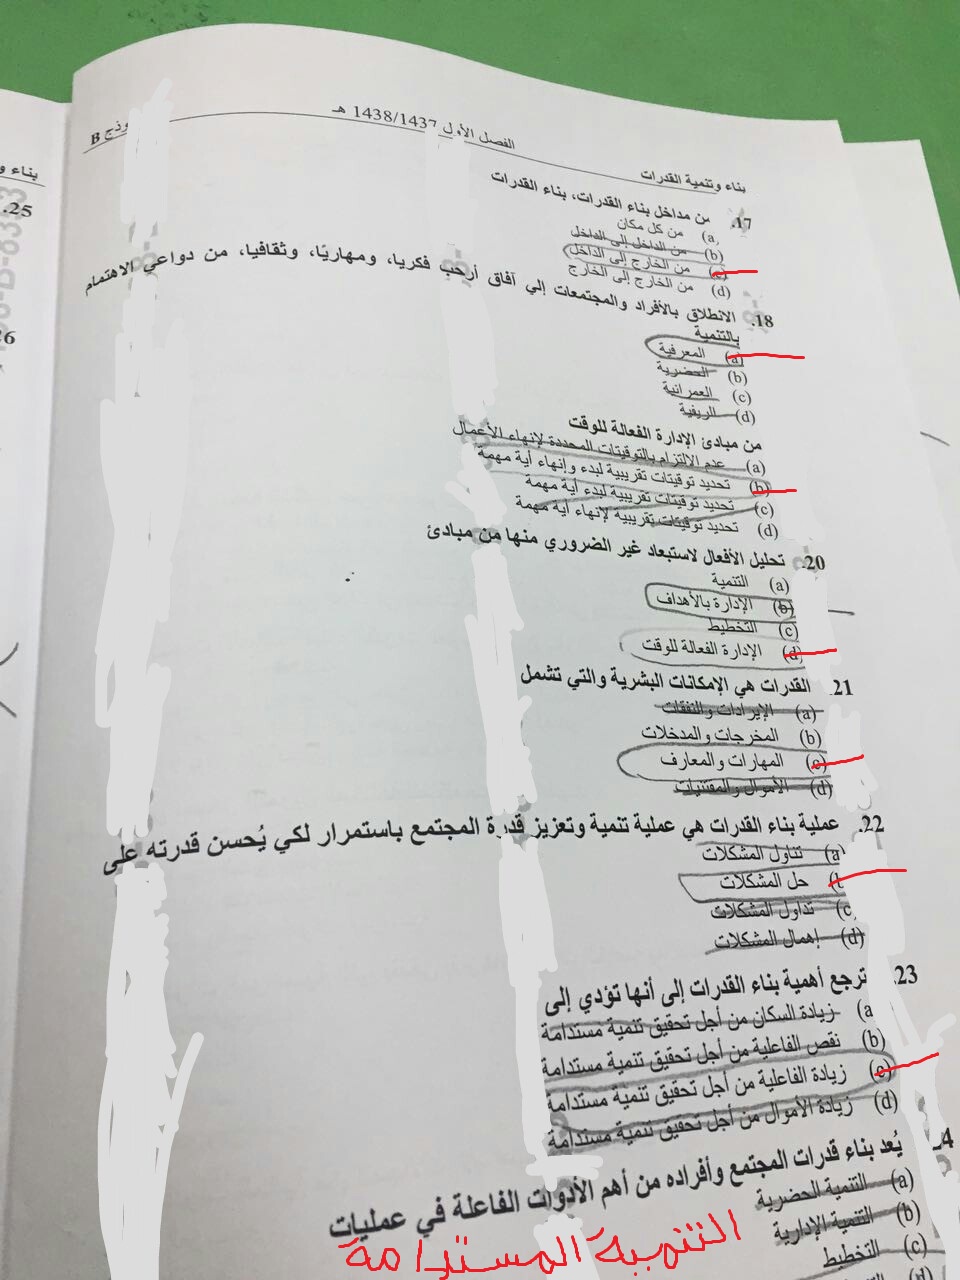 الفصل الأول 1438/1437 هـ
وذج B
بناء وتنمية القدرات
17. من مداخل بناء القدرات، بناء القدرات
(a من كل مكان
(b من الداخل إلى الداخل
(c من الخارج إلى الداخل
(d من الخارج إلى الخارج
18. الانطلاق بالأفراد والمجتمعات إلي آفاق أرحب فكريا، ومهاريًا، وثقافيا، من دواعي الاهتمام
بالتنمية
(a المعرفية
(b الحضرية
(c العمرانية
(d الريفية
من مبادئ الإدارة الفعالة للوقت
(a عدم الالتزام بالتوقيتات المحددة لإنهاء الأعمال
(b تحديد توقيتات تقريبية لبدء وإنهاء أية مهمة
(c تحديد توقيتات تقريبية لبدء أية مهمة
(d تحديد توقيتات تقريبية لإنهاء أية مهمة
20. تحليل الأفعال لاستبعاد غير الضروري منها من مبادئ
(a التنمية
(b الإدارة بالأهداف
(c التخطيط
(d الإدارة الفعالة للوقت
21 القدرات هي الإمكانات البشرية والتي تشمل
(a الإيرادات والنفقات
(b المخرجات والمدخلات
(c المهارات والمعارف
(d الأموال والمقتنيات
22. عملية بناء القدرات هي عملية تنمية وتعزيز قدرة المجتمع باستمرار لكي يُحسن قدرته على
(a تناول المشكلات
(b حل المشكلات
(c تداول المشكلات
(d إهمال المشكلات
23. ترجع أهمية بناء القدرات إلى أنها تؤدي إلى
(a زيادة السكان من أجل تحقيق تنمية مستدامة
(b نقص الفاعلية من أجل تحقيق تنمية مستدامة
(c زيادة الفاعلية من أجل تحقيق تنمية مستدامة
(d زيادة الأموال من أجل تحقيق تنمية مستدامة
4 يُعد بناء قدرات المجتمع وأفراده من أهم الأدوات الفاعلة في عمليات
(a التنمية الحضرية
(b التنمية الإدارية
(c التخطيط
التنمية المستدامة
بناء و
25.
26